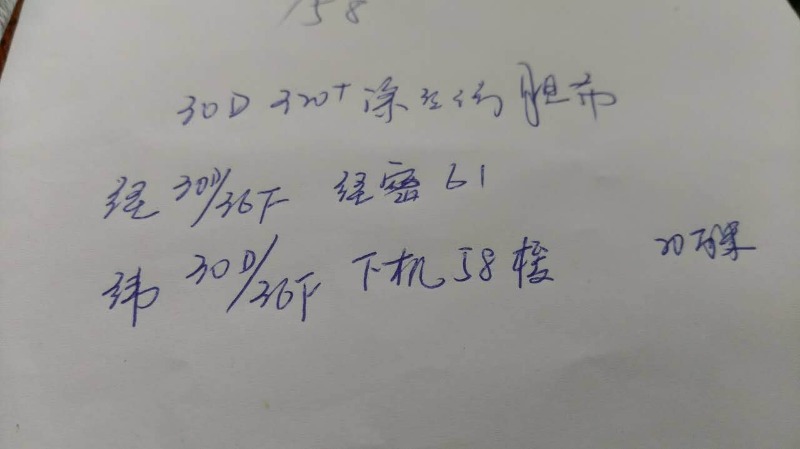 158
30D 320T 涤纶仿 胆布
经 30D/36F 经密 61
纬 30D/36F 下机 58梭
20万米